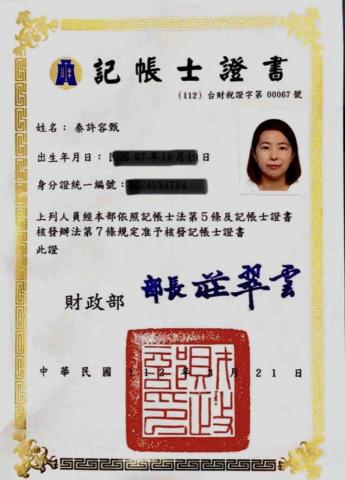 記帳士證書
(112) 台財稅證字第 00067 號
姓名: 秦許容甄
出生年月日:
身分證統一編號:
上列人員經本部依照記帳士法第5條及記帳士證書
核發辦法第7條規定准予核發記帳士證書
此證
財政部 部長 莊翠雲
財政部印
中華民國 112 年 月 21 日